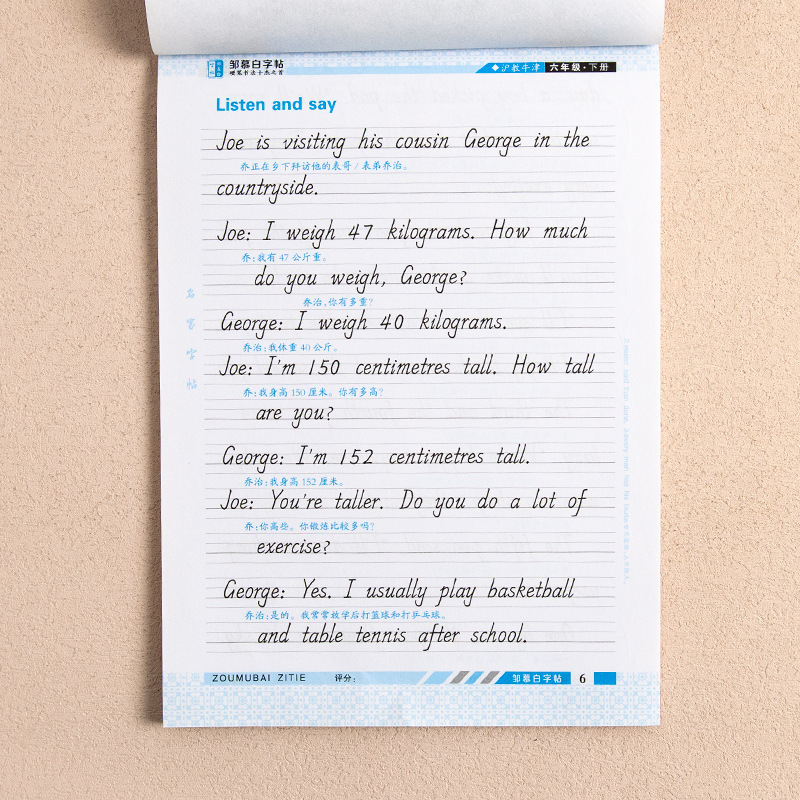 邹慕白字帖
硬笔书法十杰之首
◆沪教牛津 六年级·下册
Listen and say
Joe is visiting his cousin George in the
乔正在乡下拜访他的表哥/表弟乔治。
countryside.
Joe: I weigh 47 kilograms. How much
乔:我有47公斤重。
do you weigh, George?
乔治,你有多重?
George: I weigh 40 kilograms.
乔治:我体重40公斤。
Joe: I'm 150 centimetres tall. How tall
乔:我身高150厘米。你有多高?
are you?
George: I'm 152 centimetres tall.
乔治:我身高152厘米。
Joe: You're taller. Do you do a lot of
乔:你高些。你锻炼比较多吗?
exercise?
George: Yes. I usually play basketball
乔治:是的。我常常放学后打篮球和打乒乓球。
and table tennis after school.
名家字帖
ZOUMUBAI ZITIE 评分:
邹慕白字帖 6